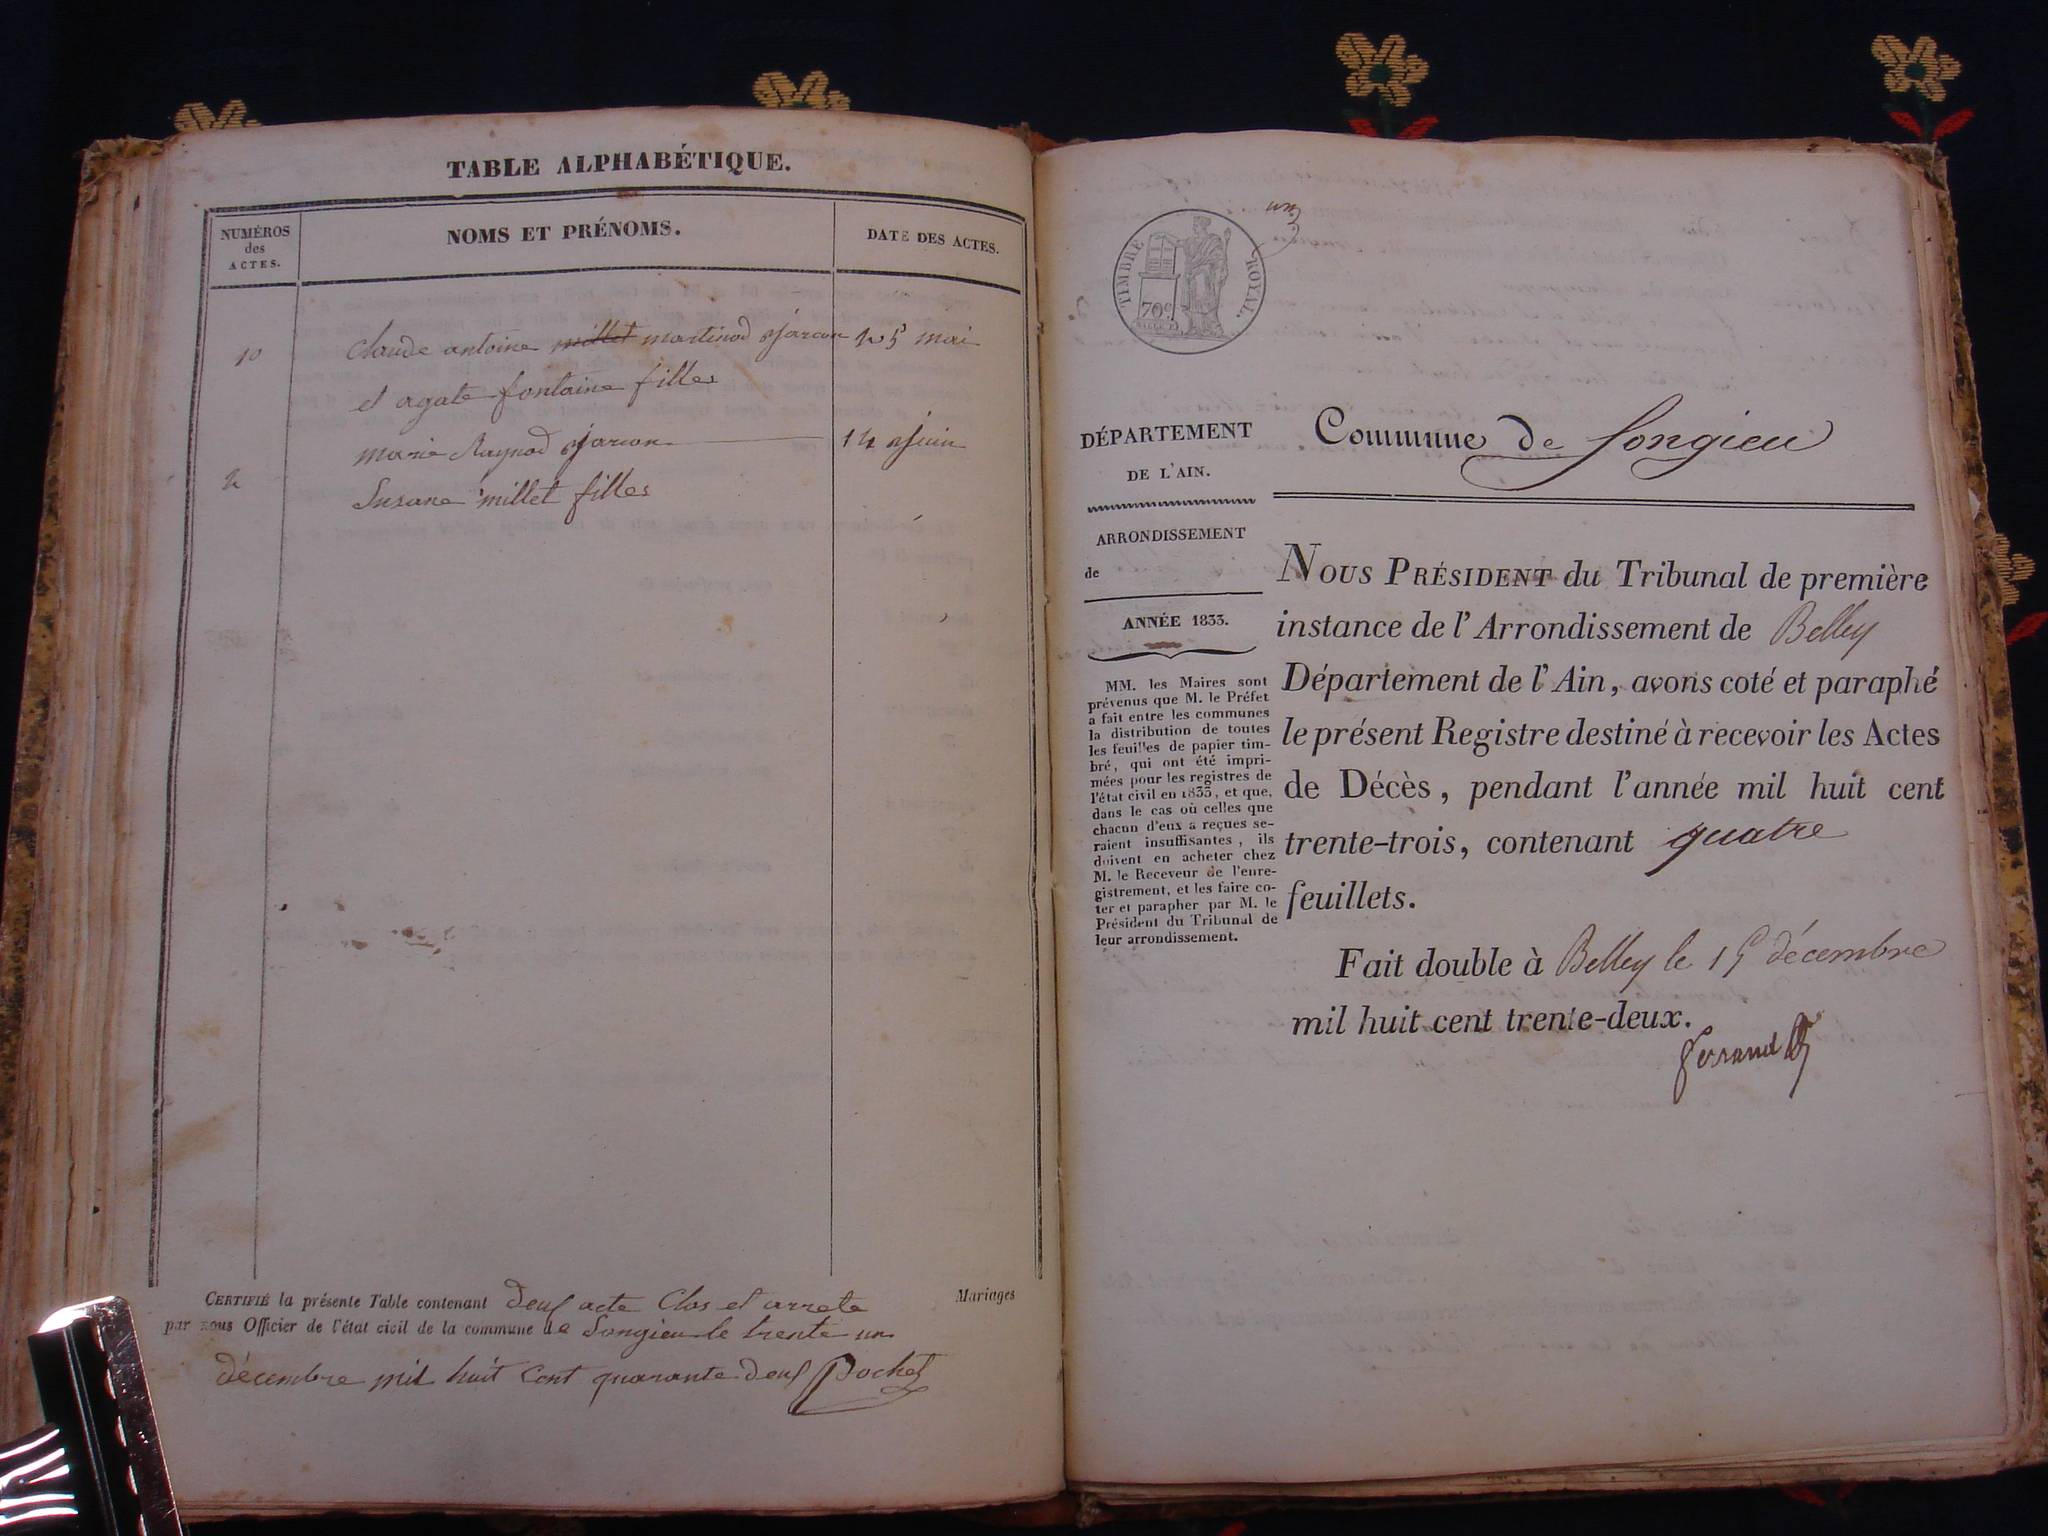 TABLE ALPHABÉTIQUE.
NUMÉROS
des
ACTES.
NOMS ET PRÉNOMS.
DATE DES ACTES.
10
claude antoine millet martinod garcon 25 mai
et agate fontaine filles
marie Raynod garcon 12 juin
2
Susane millet filles
CERTIFIÉ la présente Table contenant deux acte Clos et arrete
Mariages
par nous Officier de l'état civil de la commune de Songieu le trente un
décembre mil huit Cent quarante deux Pochet
TIMBRE ROYAL.
70c
un
DÉPARTEMENT
DE L'AIN.
Commune de Songieu
ARRONDISSEMENT
de
ANNÉE 1833.
MM. les Maires sont
prévenus que M. le Préfet
a fait entre les communes
la distribution de toutes
les feuilles de papier tim-
bré, qui ont été impri-
mées pour les registres de
l'état civil en 1833, et que,
dans le cas où celles que
chacun d'eux a reçues se-
raient insuffisantes, ils
doivent en acheter chez
M. le Receveur de l'enre-
gistrement, et les faire co-
ter et parapher par M. le
Président du Tribunal de
leur arrondissement.
NOUS PRÉSIDENT du Tribunal de première
instance de l'Arrondissement de Belley
Département de l'Ain, avons coté et paraphé
le présent Registre destiné à recevoir les Actes
de Décès, pendant l'année mil huit cent
trente-trois, contenant quatre
feuillets.
Fait double à Belley le 15 décembre
mil huit cent trente-deux.
ferrand